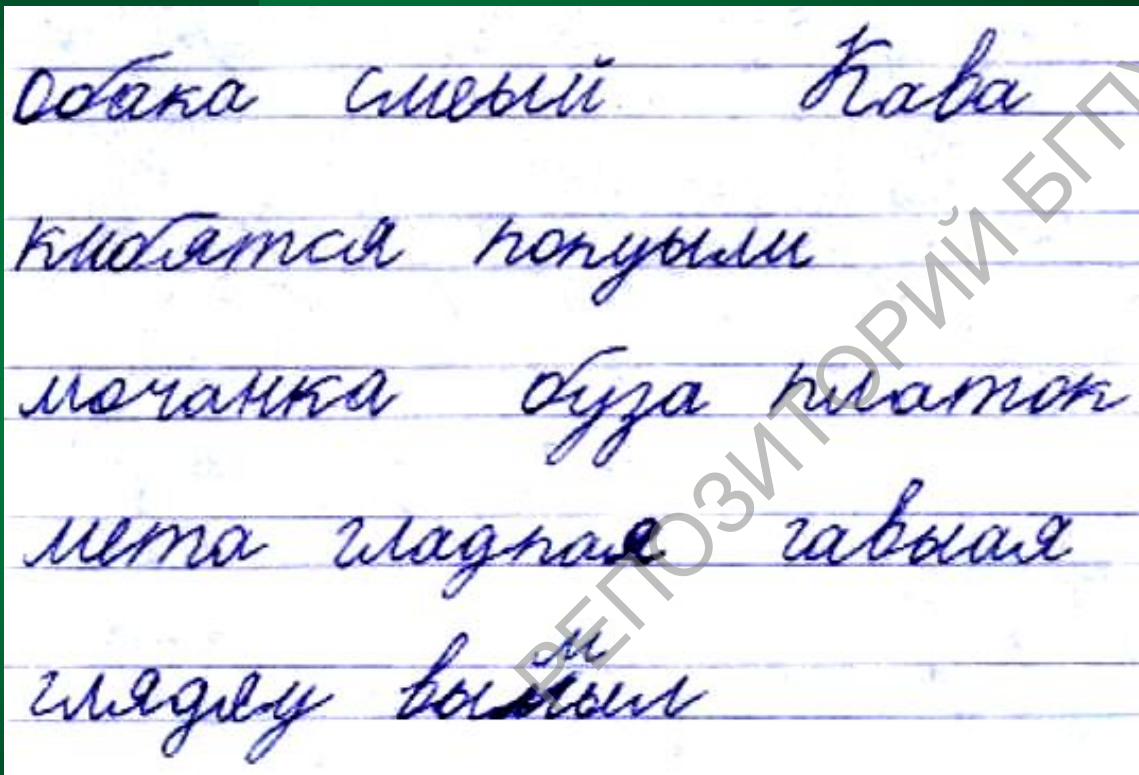 обака смеый Кава
клюбятся попуыли
мочанка буза платок
мета гладкая гавыая
глядяу вымыл
м
РЕПОЗИТОРИЙ БГПУ